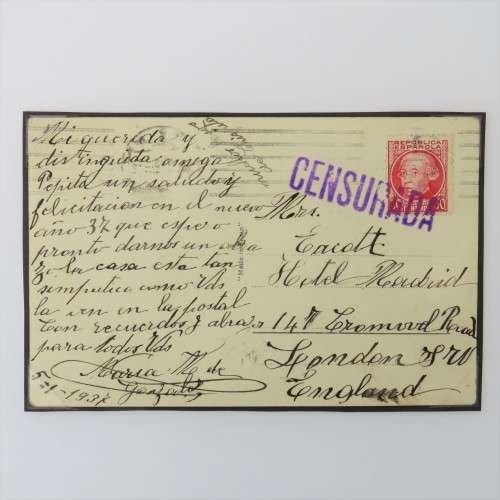 Mi querida y
distinguida amiga
Pepita un saludo y
felicitacion en el nuevo
año 37 que espero
pronto darnos un abra
zo la casa esta tan
simpatica como Vds
la ven en la postal
Con recuerdos y abrazos
para todos Vds
María M. de
5-1-1937
CENSURADA
REPUBLICA
ESPAÑOLA
30
Mrs.
Hotel Madrid
147 Cromwell Road
London SW
England